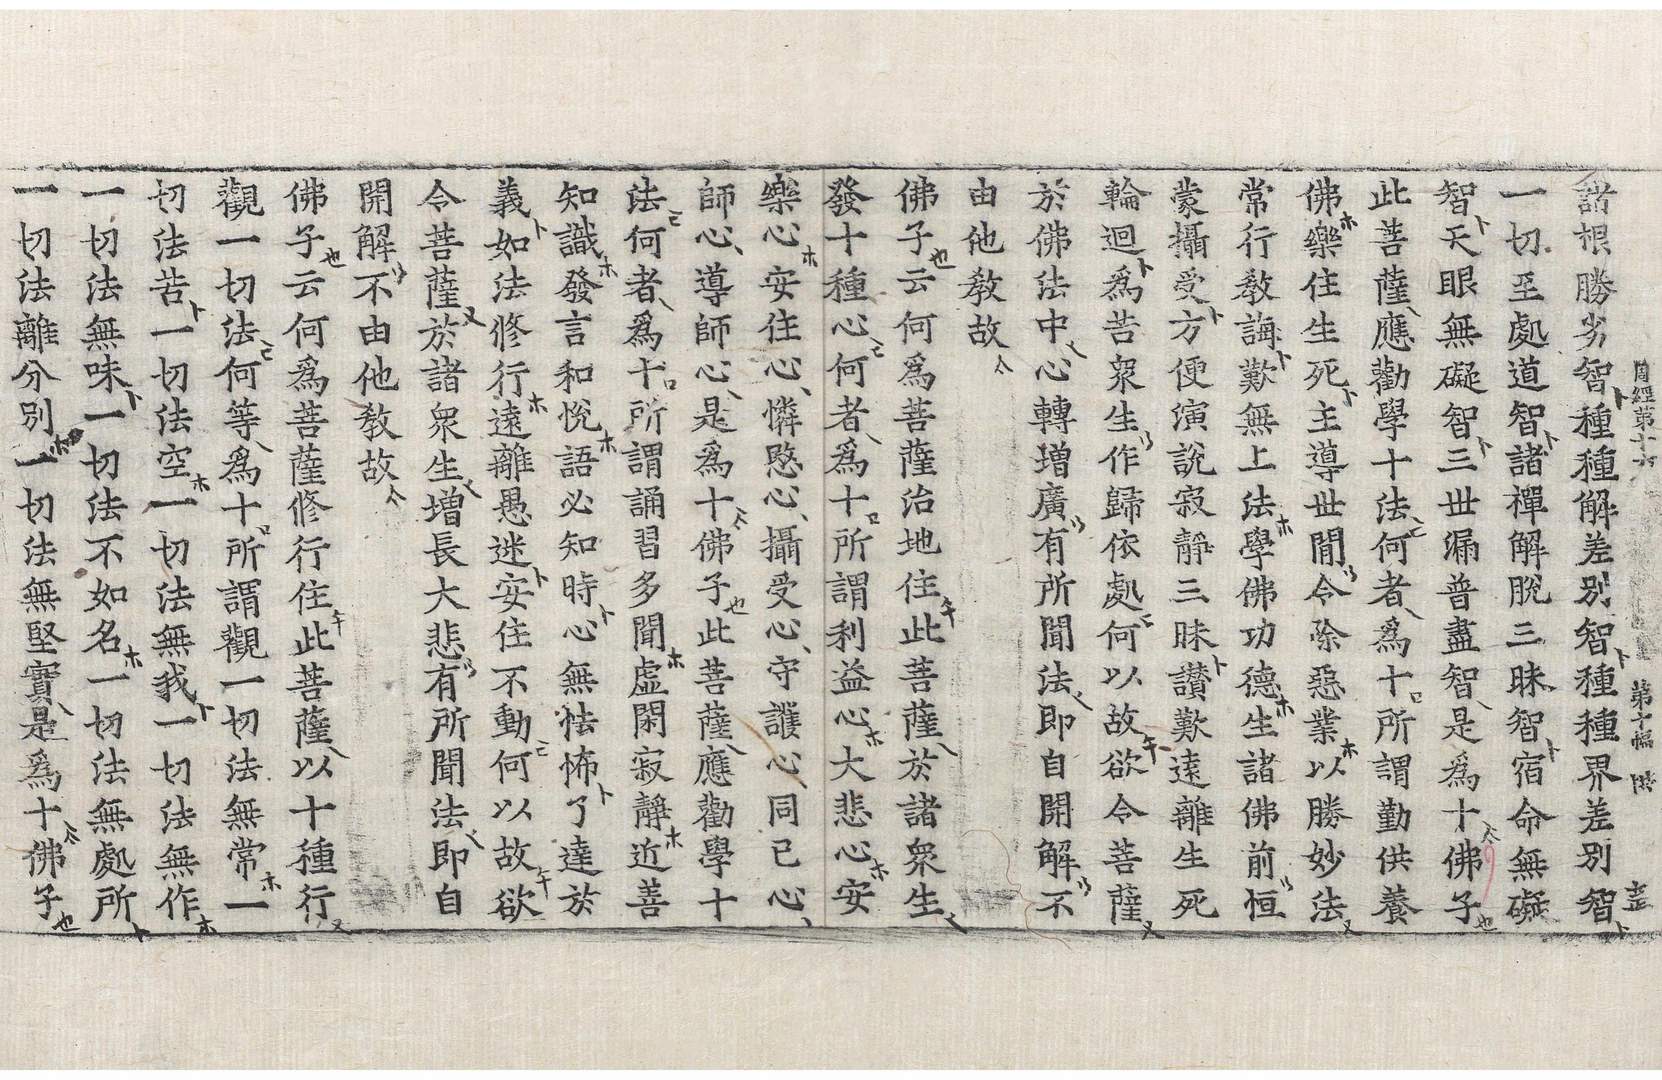 周經第十六 第十幅 陜 圭
諸根勝劣智種種解差別智種種界差別智
一切至處道智諸禪解脫三昧智宿命無礙
智天眼無礙智三世漏普盡智是爲十佛子
此菩薩應勸學十法何者爲十所謂勤供養
佛樂住生死主導世閒令除惡業以勝妙法
常行敎誨歎無上法學佛功德生諸佛前恒
蒙攝受方便演說寂靜三昧讚歎遠離生死
輪迴爲苦衆生作歸依處何以故欲令菩薩
於佛法中心轉增廣有所聞法即自開解不
由他敎故
佛子云何爲菩薩治地住此菩薩於諸衆生
發十種心何者爲十所謂利益心大悲心安
樂心安住心憐愍心攝受心守護心同己心
師心導師心是爲十佛子此菩薩應勸學十
法何者爲十所謂誦習多聞虛閑寂靜近善
知識發言和悅語必知時心無怯怖了達於
義如法修行遠離愚迷安住不動何以故欲
令菩薩於諸衆生增長大悲有所聞法即自
開解不由他敎故
佛子云何爲菩薩修行住此菩薩以十種行
觀一切法何等爲十所謂觀一切法無常一
切法苦一切法空一切法無我一切法無作
一切法無味一切法不如名一切法無處所
一切法離分別一切法無堅實是爲十佛子